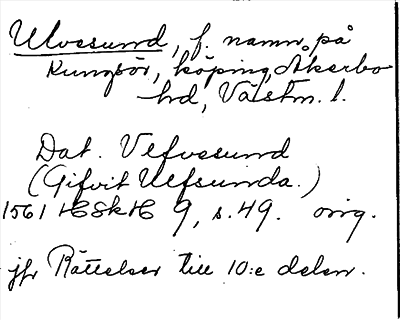 Ulvesund, f. namn på
Kungsör, köping, Åkerbo
hd, Västm. l.
Dat. Vlfvesund
(Gifvit Ulfsunda.)
1561 HSkH 9, s. 49. orig.
jfr Rättelser till 10:e delen.